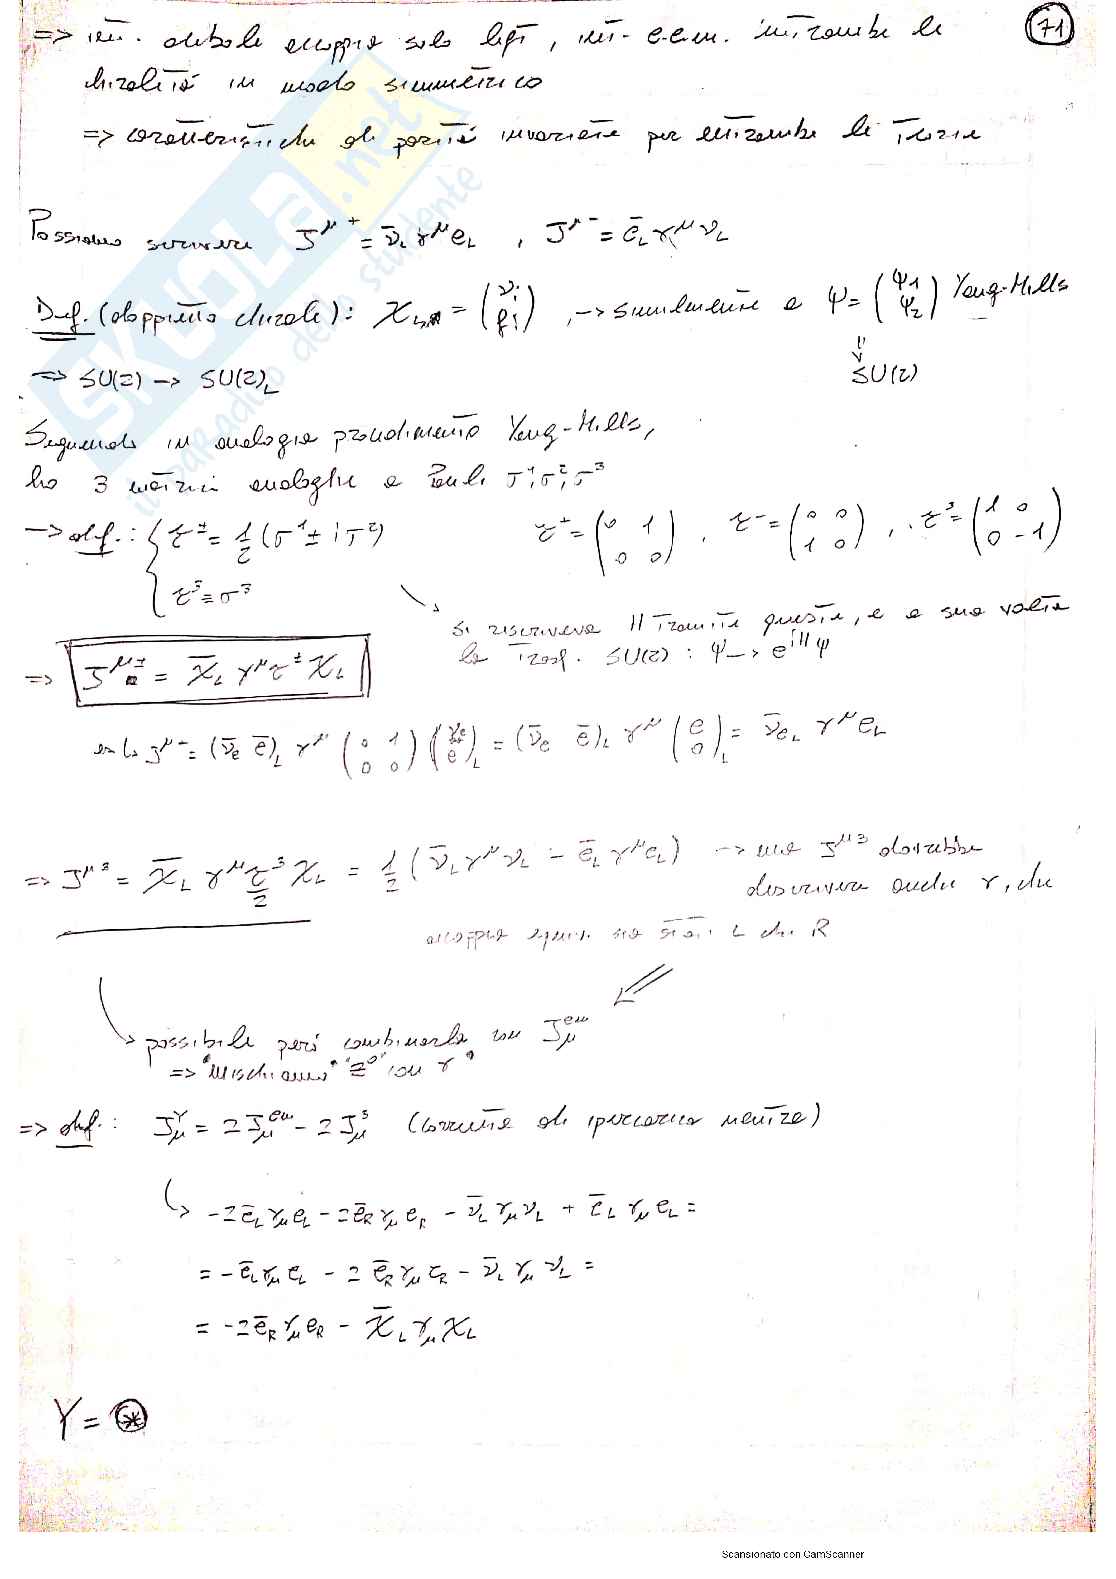 71
=> int. debole accoppia solo left, int. e.e.m. entrambe le
chiralità in modo simmetrico
=> caratteristiche di parità invariate per entrambe le teorie
Possiamo scrivere J^{μ+} = ν̄_L γ^μ e_L , J^{μ-} = ē_L γ^μ ν_L
Def. (doppietto chirale): χ_L = (ν_i ; f_i) , -> similmente a ψ = (ψ_1 ; ψ_2) Yang-Mills
=> SU(2) -> SU(2)_L
SU(2)
Seguendo in analogia procedimento Yang-Mills,
ho 3 matrici analoghe a Pauli σ^1, σ^2, σ^3
-> def.: { τ^± = 1/2 (σ^1 ± iσ^2) τ^+ = (0 1 ; 0 0) , τ^- = (0 0 ; 1 0) , τ^3 = (1 0 ; 0 -1)
τ^3 ≡ σ^3
si riscriveva H tramite queste, e a sua volta
la trasf. SU(2) : ψ -> e^{iH} ψ
=> J^{μ±} = χ̄_L γ^μ τ^± χ_L
J^{μ-} = (ν̄_e ē)_L γ^μ (0 1 ; 0 0) (ν_e ; e)_L = (ν̄_e ē)_L γ^μ (e ; 0)_L = ν̄_{eL} γ^μ e_L
=> J^{μ3} = χ̄_L γ^μ τ^3/2 χ_L = 1/2 (ν̄_L γ^μ ν_L - ē_L γ^μ e_L) -> ma J^{μ3} dovrebbe
descrivere anche γ, che
accoppia equiv. sia stati L che R
possibile però combinarla con J_μ^{em}
=> "mischiamo" "Z^0" con γ"
=> def.: J_μ^Y = 2J_μ^{em} - 2J_μ^3 (corrente di ipercarica neutra)
-2ē_L γ_μ e_L - 2ē_R γ_μ e_R - ν̄_L γ_μ ν_L + ē_L γ_μ e_L =
= -ē_L γ_μ e_L - 2 ē_R γ_μ e_R - ν̄_L γ_μ ν_L =
= -2ē_R γ_μ e_R - χ̄_L γ_μ χ_L
Y = ⊛
SKUOLA.net
il paradiso dello studente
Scansionato con CamScanner